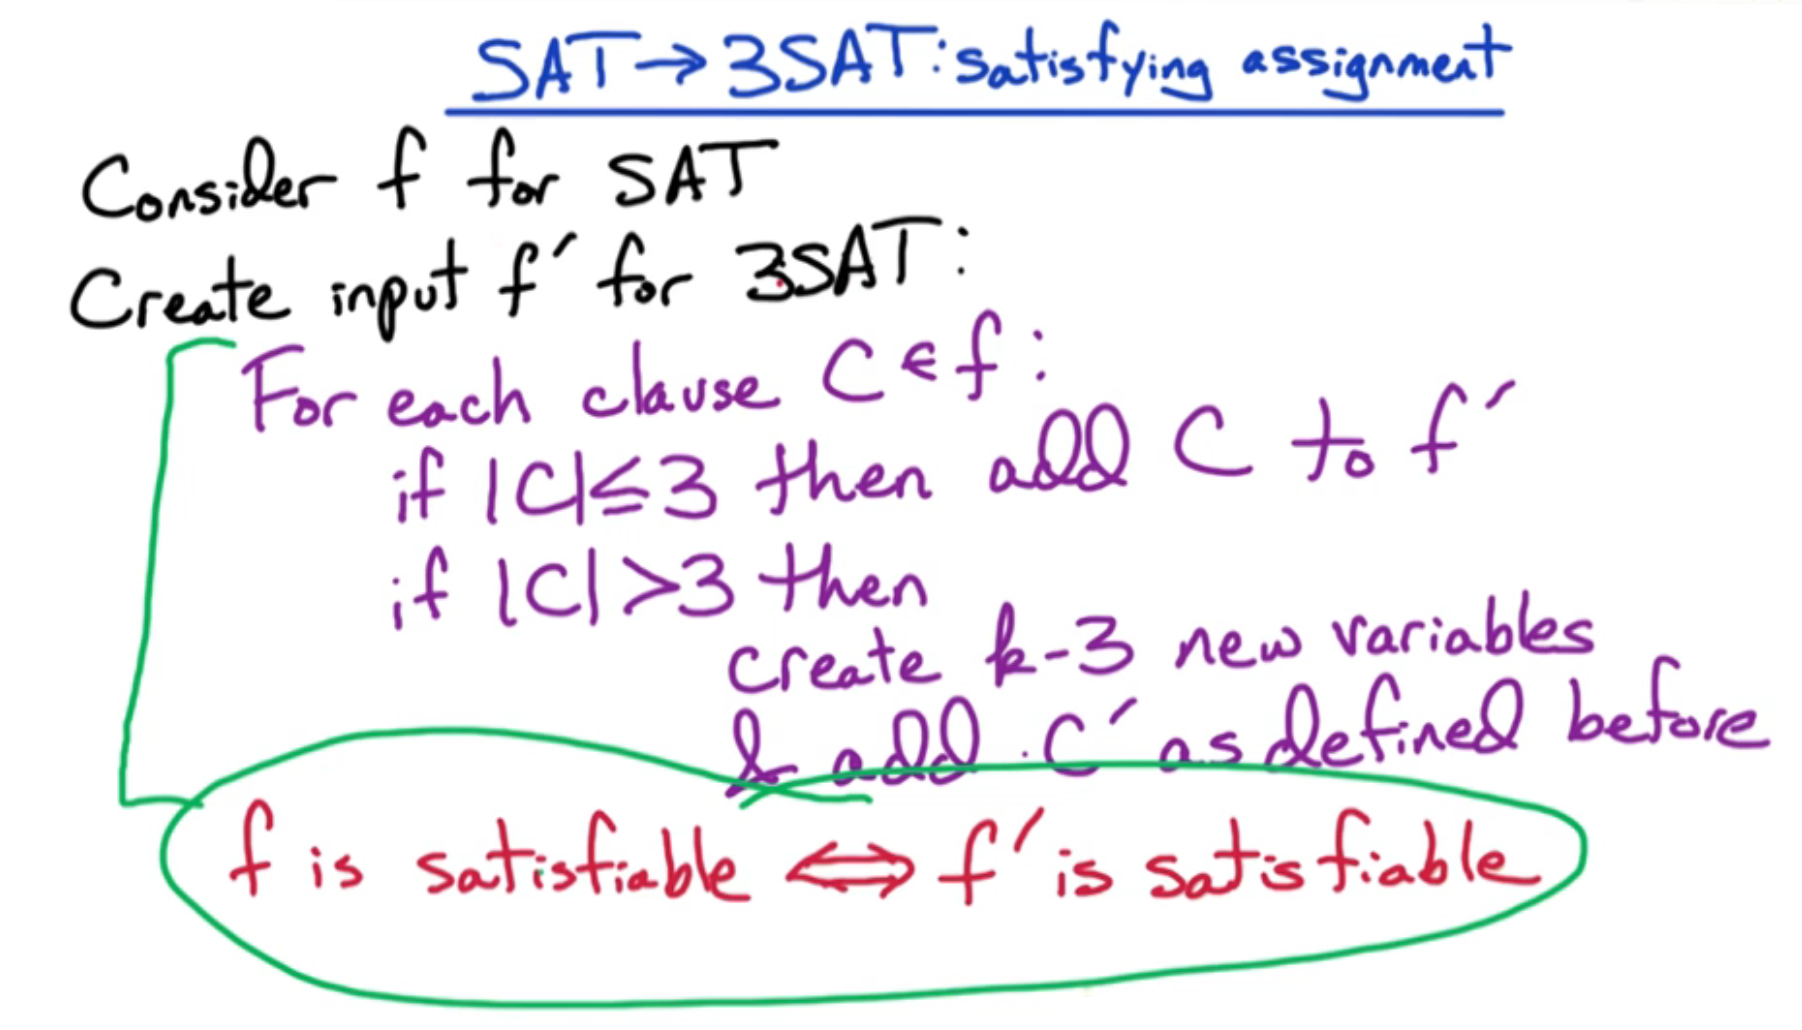 SAT→3SAT: satisfying assignment
Consider f for SAT
Create input f′ for 3SAT:
For each clause C ∈ f:
if |C| ≤ 3 then add C to f′
if |C| > 3 then
create k-3 new variables
& add C′ as defined before
f is satisfiable ⟺ f′ is satisfiable